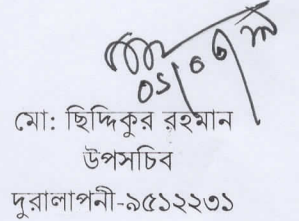 মো: ছিদ্দিকুর রহমান
উপসচিব
দুরালাপনী-৯৫১২২৩১